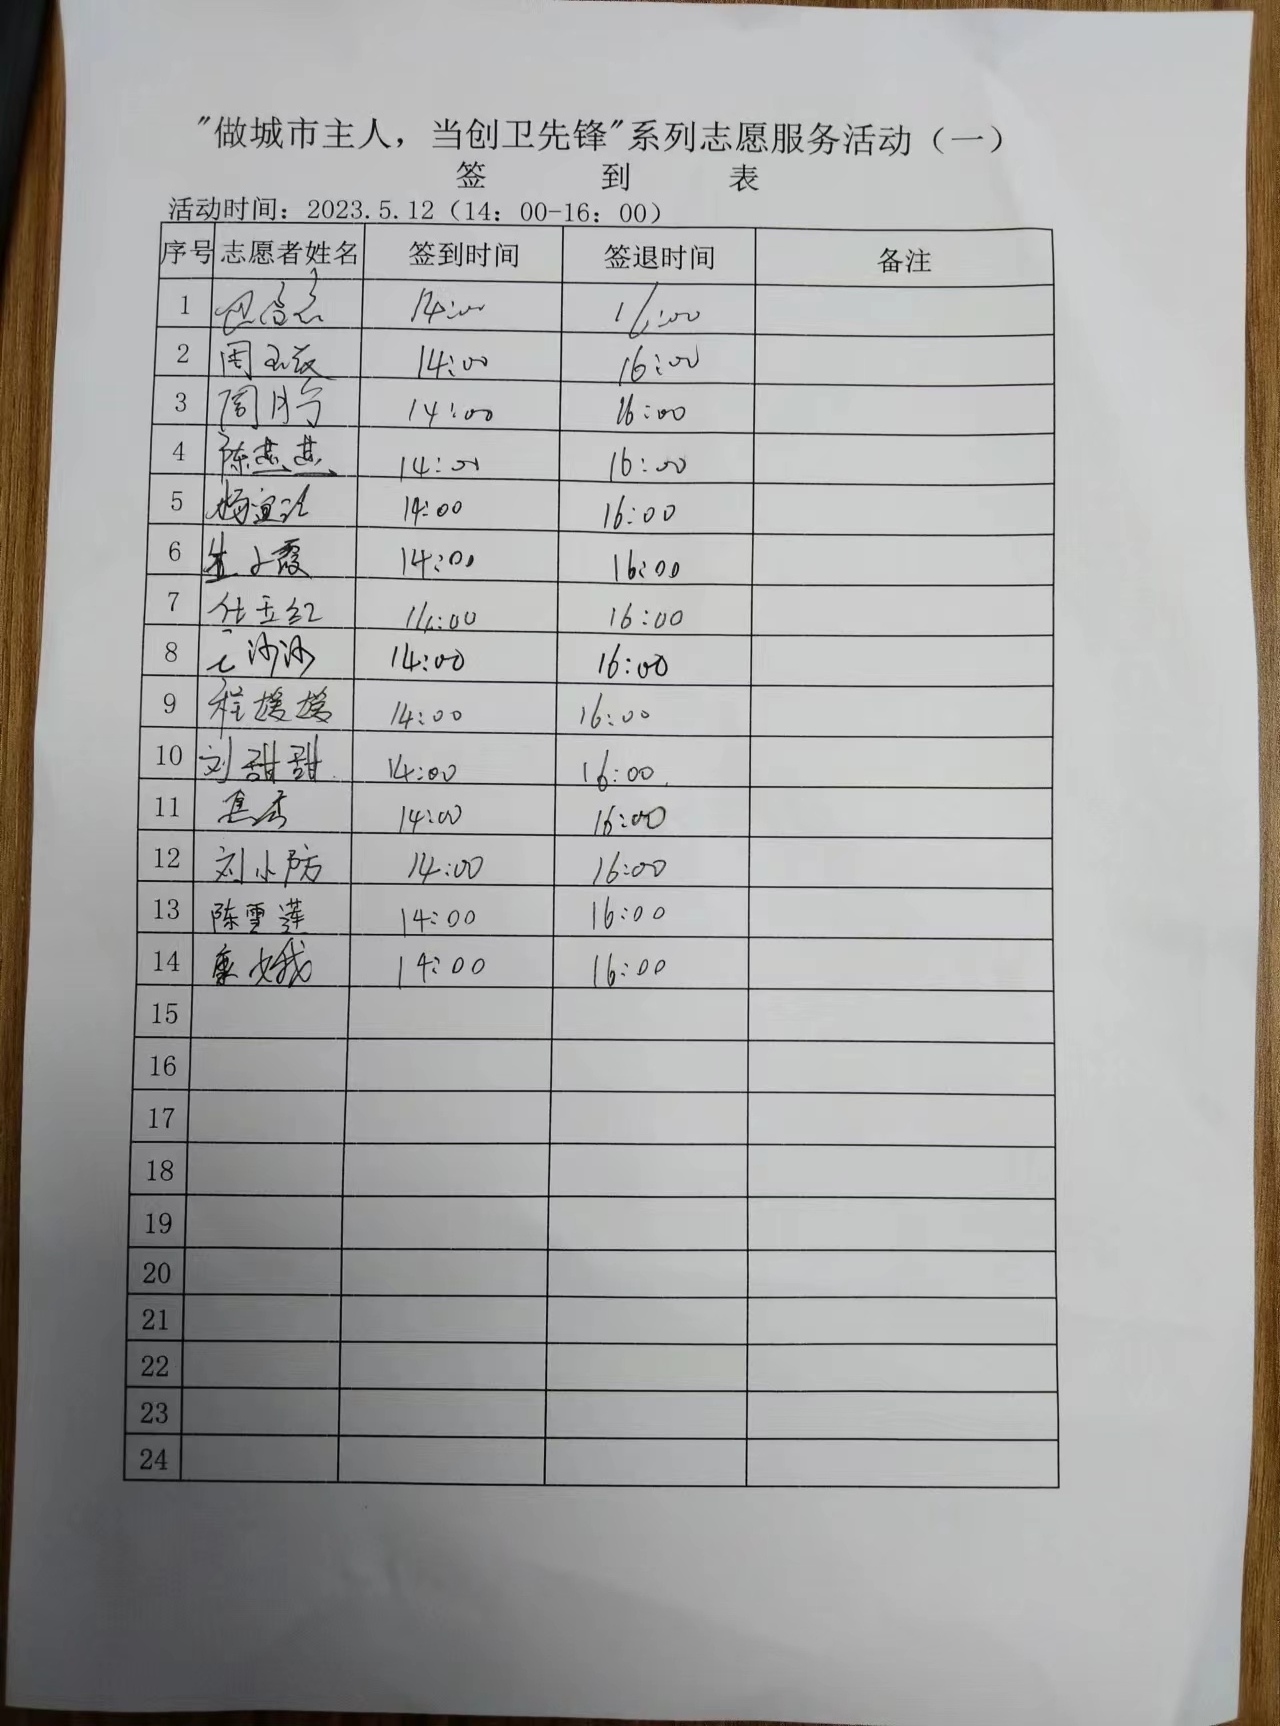 "做城市主人，当创卫先锋"系列志愿服务活动（一）
签 到 表
活动时间：2023.5.12（14：00-16：00）
序号 志愿者姓名 签到时间 签退时间 备注
1 14:00 16:00
2 周玉 14:00 16:00
3 周 14:00 16:00
4 陈燕燕 14:00 16:00
5 梅 14:00 16:00
6 霞 14:00 16:00
7 任玉红 14:00 16:00
8 沙沙 14:00 16:00
9 程媛媛 14:00 16:00
10 刘甜甜 14:00 16:00
11 14:00 16:00
12 刘小防 14:00 16:00
13 陈雪莲 14:00 16:00
14 康娥 14:00 16:00
15
16
17
18
19
20
21
22
23
24